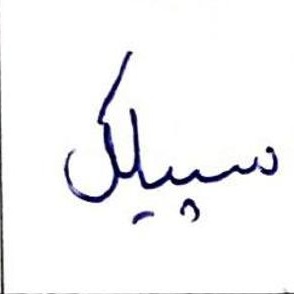 سپیلک